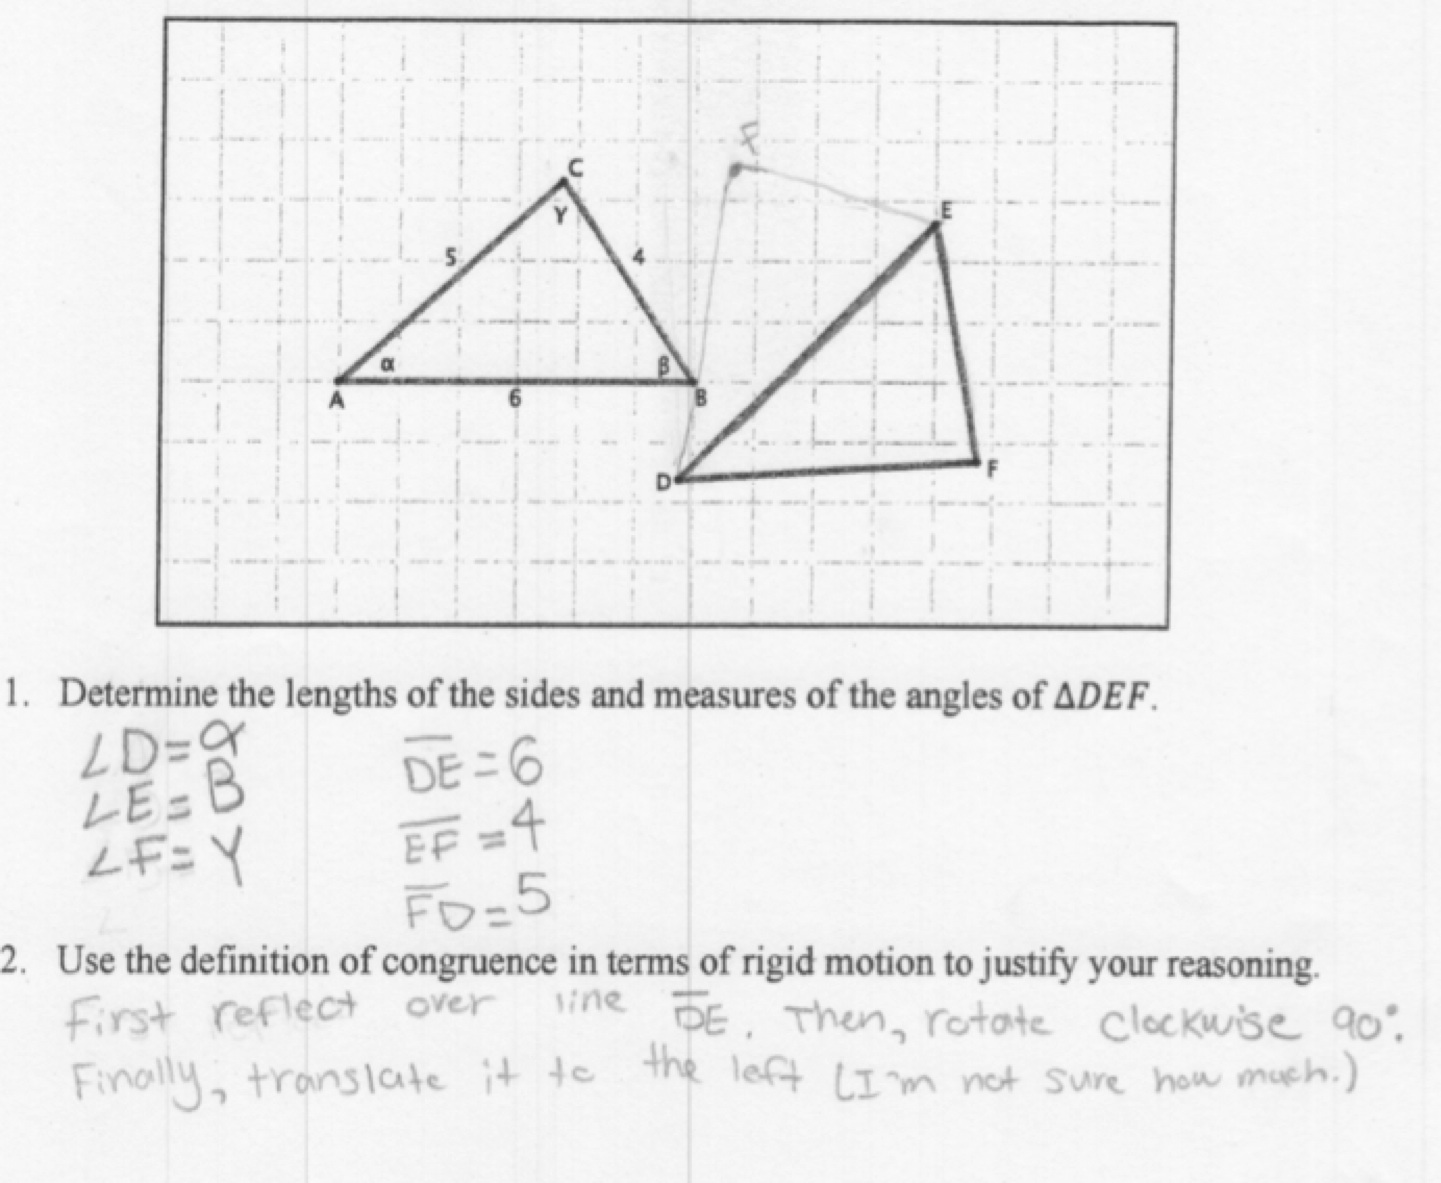 F
C
γ
E
5
4
α
β
A
6
B
D
F
1. Determine the lengths of the sides and measures of the angles of ΔDEF.
∠D=α
DE=6
∠E=B
EF=4
∠F=Y
FD=5
2. Use the definition of congruence in terms of rigid motion to justify your reasoning.
First reflect over line DE. Then, rotate clockwise 90°.
Finally, translate it to the left (I'm not sure how much.)